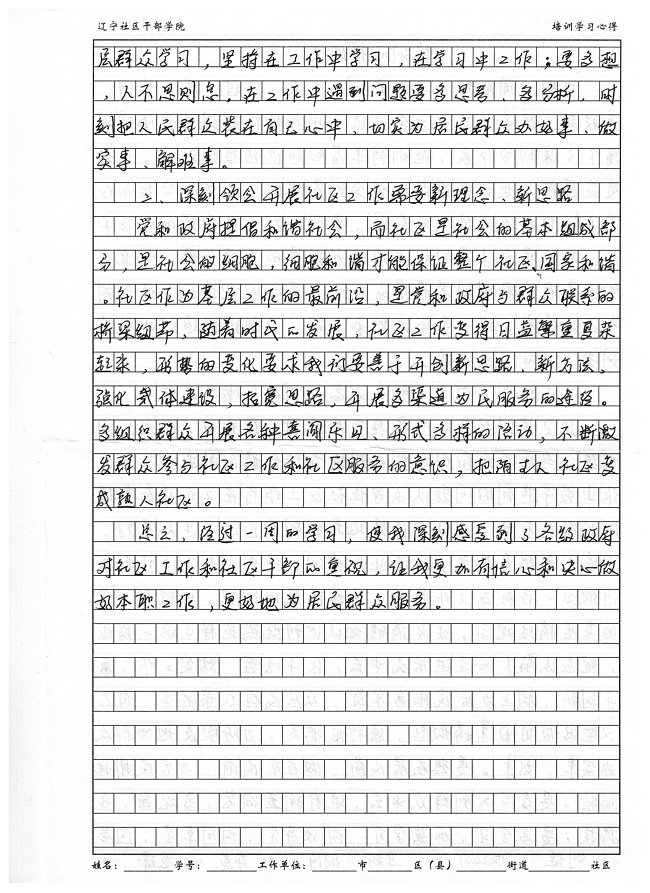 辽宁社区干部学院 培训学习心得
层群众学习，坚持在工作中学习，在学习中工作；要多想
，人不思则怠。在工作中遇到问题要多思考、多分析，时
刻把人民群众装在自己心中，切实为居民群众办好事、做
实事、解难事。
二、深刻领会开展社区工作需要新理念、新思路
党和政府提倡和谐社会，而社区是社会的基本组成部
分，是社会的细胞，细胞和谐才能保证整个社区、国家和谐
。社区作为基层工作的最前沿，是党和政府与群众联系的
桥梁纽带，随着时代的发展，社区工作变得日益繁重复杂
起来，形势的变化要求我们要善于开创新思路、新方法。
强化载体建设，拓宽思路，开展多渠道为民服务的途径。
多组织群众开展各种喜闻乐见、形式多样的活动，不断激
发群众参与社区工作和社区服务的意识，把陌生人社区变
成熟人社区。
总之，经过一周的学习，使我深刻感受到了各级政府
对社区工作和社区干部的重视，让我更加有信心和决心做
好本职工作，更好地为居民群众服务。
姓名： 学号： 工作单位： 市 区（县） 街道 社区